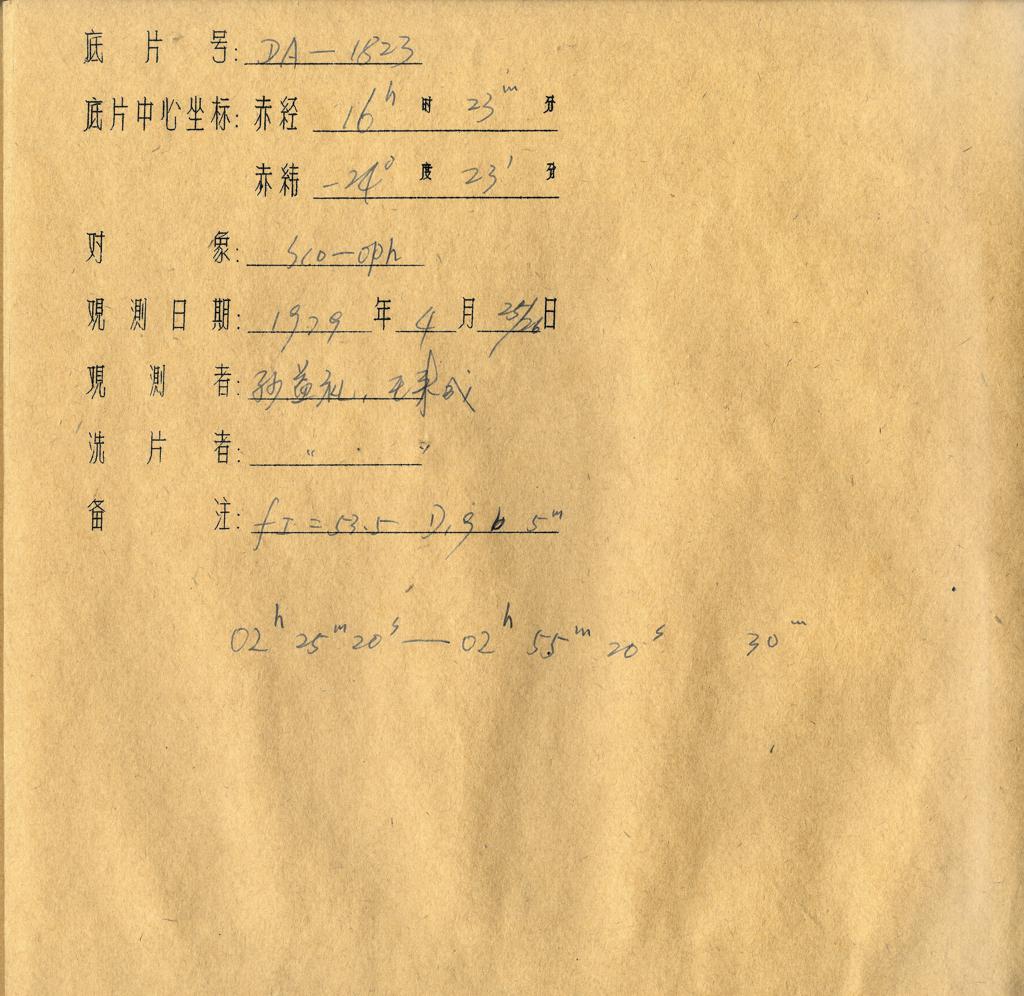 底片号: DA-1823
底片中心坐标: 赤经 16h 时 23m 分
赤纬 -24° 度 23' 分
对象: Sco-oph
观测日期: 1979 年 4 月 25/26 日
观测者: 孙益礼, 王来
洗片者: " "
备注: fI=53.5 5m
02h 25m 20s — 02h 55m 20s 30m